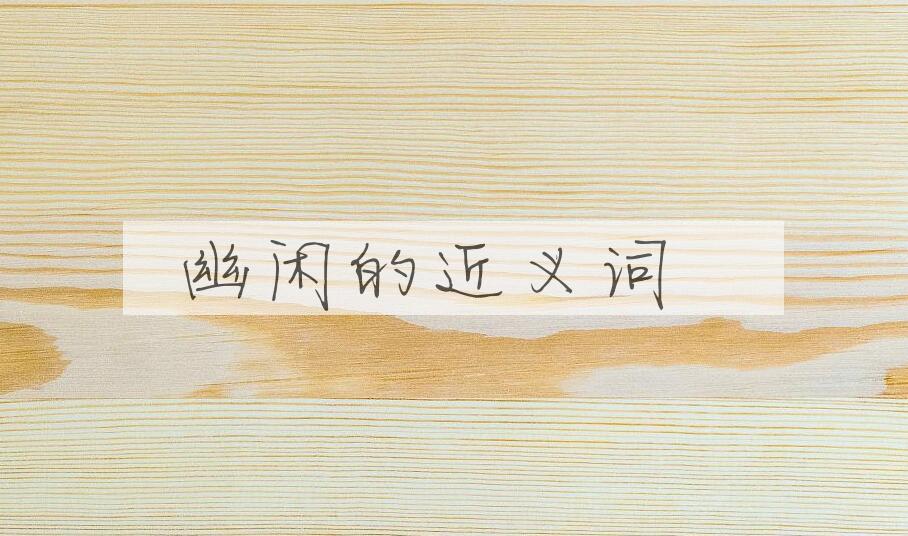 幽闲的近义词